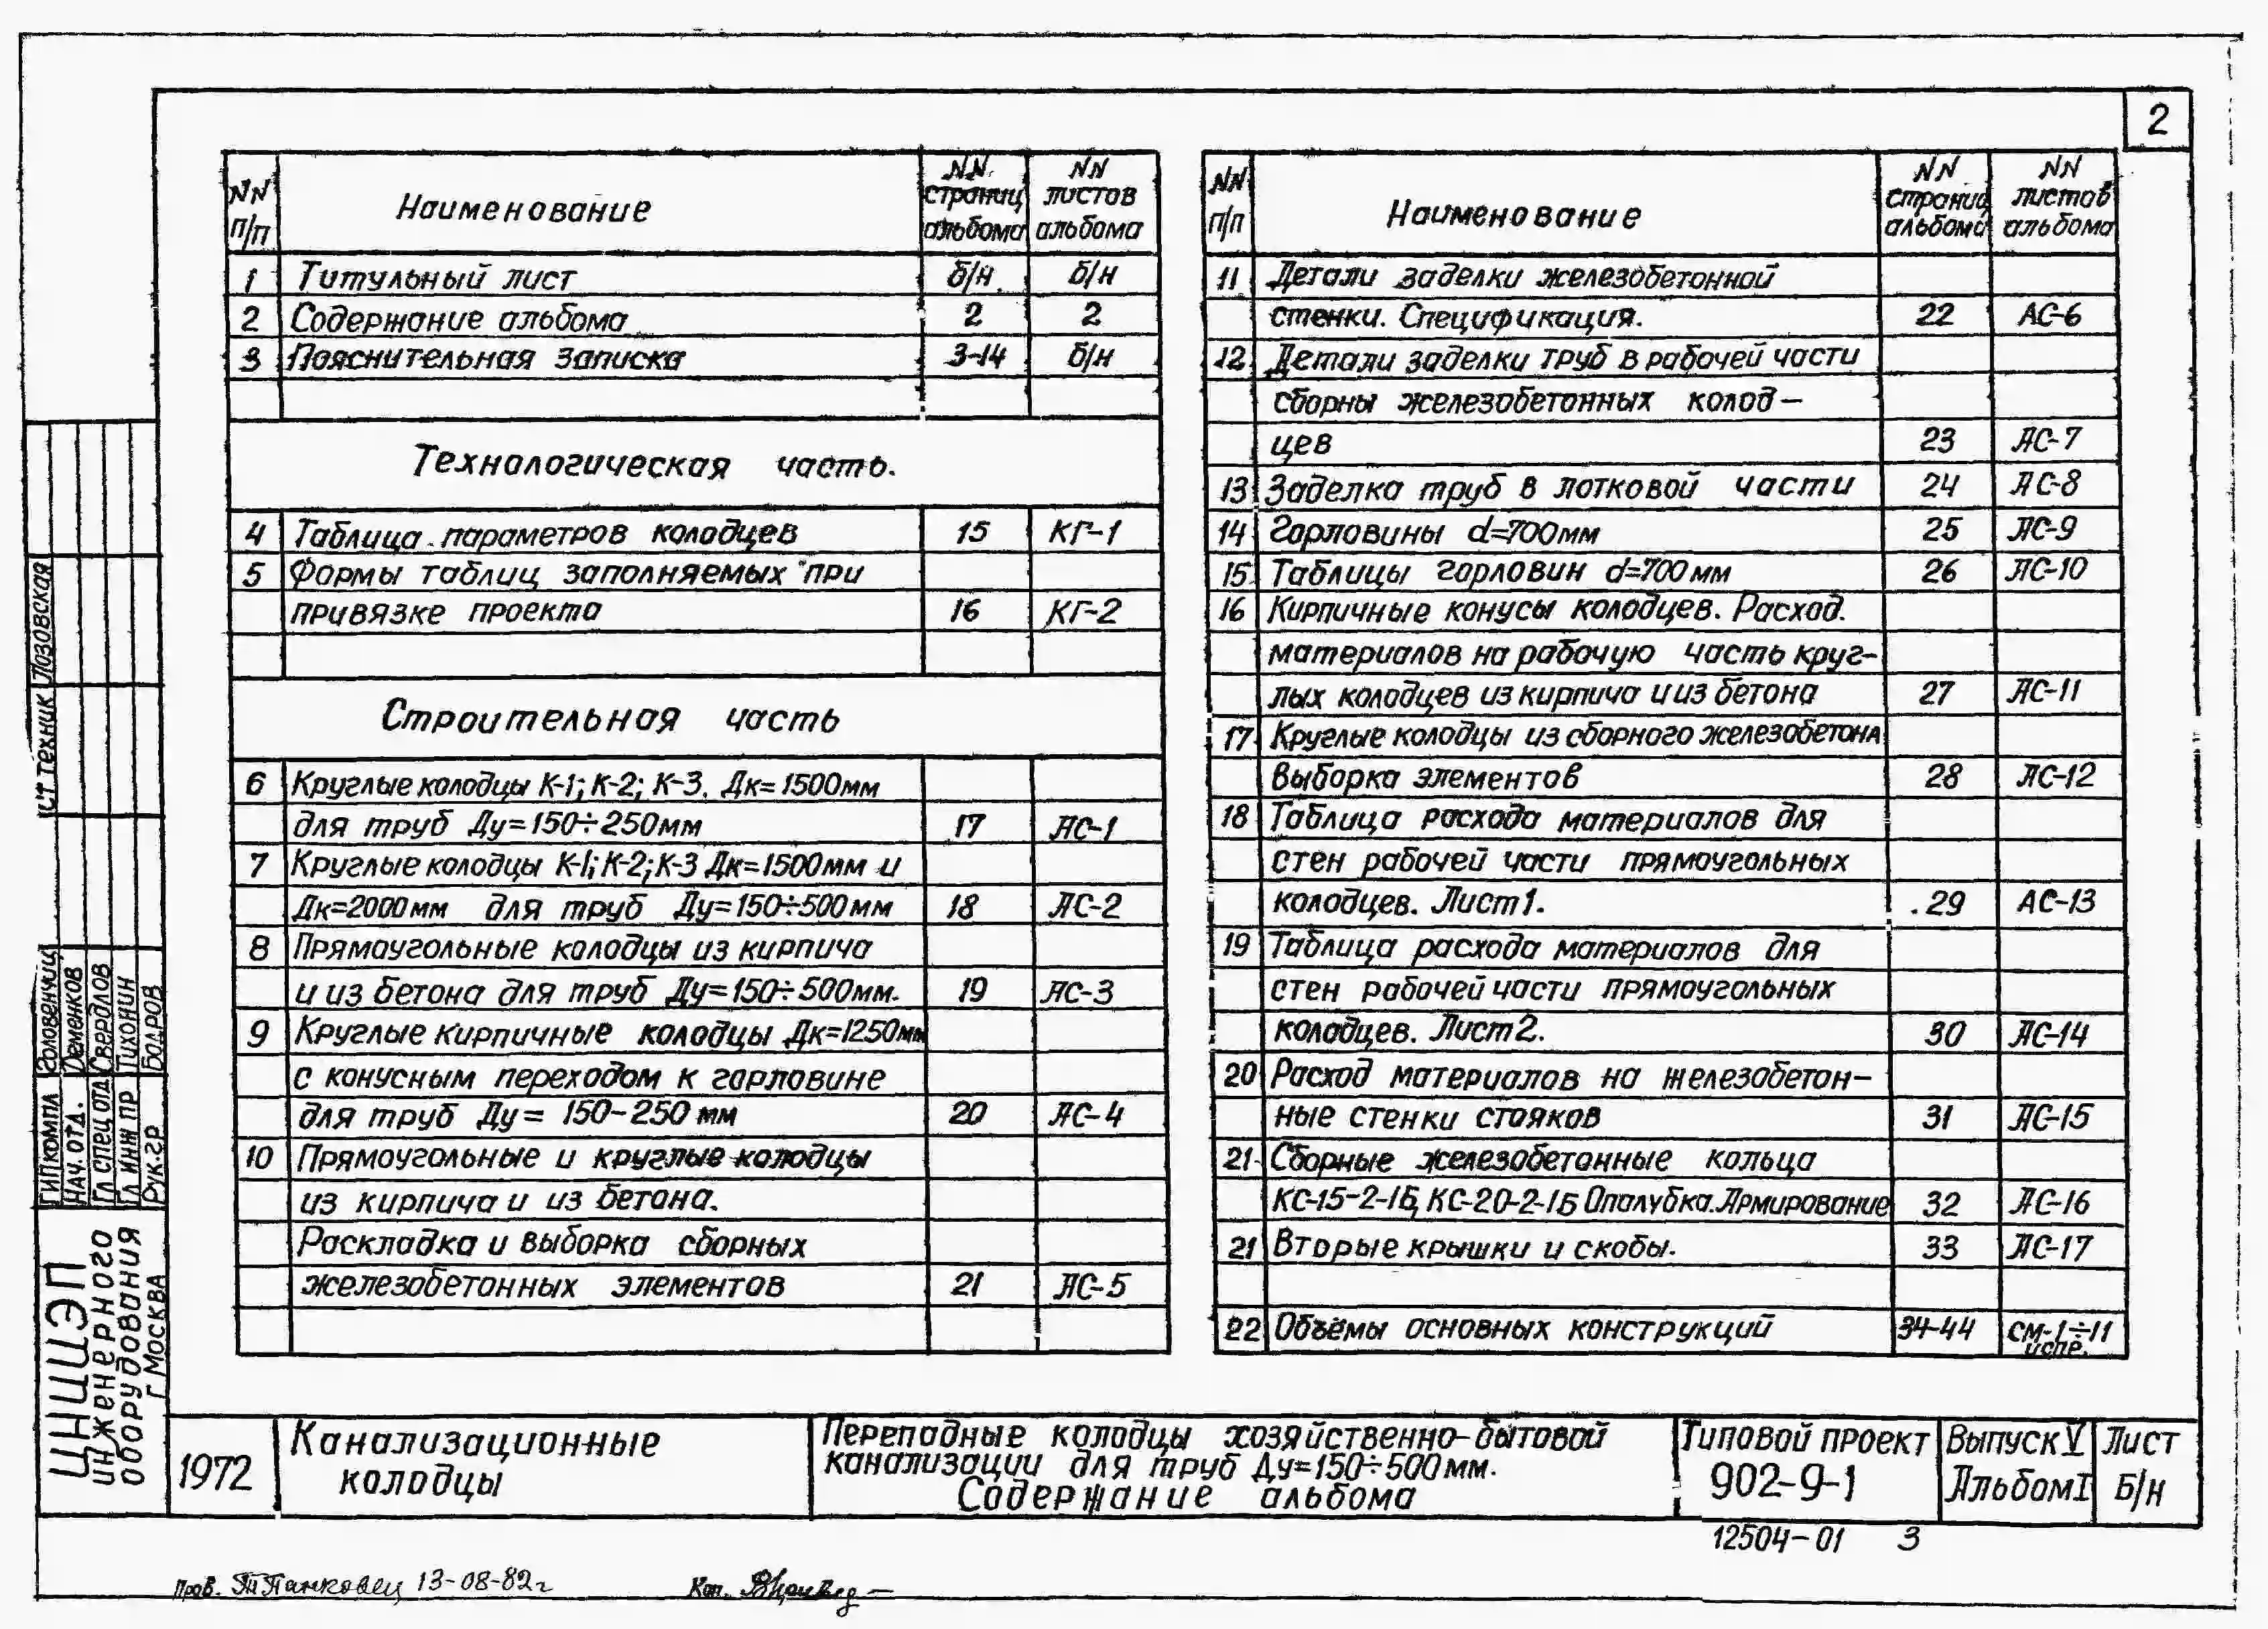 2
NN п/п Наименование NN страниц альбома NN листов альбома
1 Титульный лист б/н б/н
2 Содержание альбома 2 2
3 Пояснительная записка 3-14 б/н
Технологическая часть.
4 Таблица параметров колодцев 15 КГ-1
5 Формы таблиц заполняемых при
привязке проекта 16 КГ-2
Строительная часть
6 Круглые колодцы К-1; К-2; К-3. Дк=1500мм
для труб Ду=150÷250мм 17 АС-1
7 Круглые колодцы К-1; К-2; К-3 Дк=1500мм и
Дк=2000мм для труб Ду=150÷500мм 18 АС-2
8 Прямоугольные колодцы из кирпича
и из бетона для труб Ду=150÷500мм. 19 АС-3
9 Круглые кирпичные колодцы Дк=1250мм
с конусным переходом к горловине
для труб Ду= 150-250мм 20 АС-4
10 Прямоугольные и круглые колодцы
из кирпича и из бетона.
Раскладка и выборка сборных
железобетонных элементов 21 АС-5
NN п/п Наименование NN страниц альбома NN листов альбома
11 Детали заделки железобетонной
стенки. Спецификация. 22 АС-6
12 Детали заделки труб в рабочей части
сборны железобетонных колод-
цев 23 АС-7
13 Заделка труб в лотковой части 24 АС-8
14 Горловины d=700мм 25 АС-9
15 Таблицы горловин d=700мм 26 АС-10
16 Кирпичные конусы колодцев. Расход.
материалов на рабочую часть круг-
лых колодцев из кирпича и из бетона 27 АС-11
17 Круглые колодцы из сборного железобетона
Выборка элементов 28 АС-12
18 Таблица расхода материалов для
стен рабочей части прямоугольных
колодцев. Лист 1. 29 АС-13
19 Таблица расхода материалов для
стен рабочей части прямоугольных
колодцев. Лист 2. 30 АС-14
20 Расход материалов на железобетон-
ные стенки стояков 31 АС-15
21 Сборные железобетонные кольца
КС-15-2-1Б, КС-20-2-1Б Опалубка. Армирование 32 АС-16
21 Вторые крышки и скобы. 33 АС-17
22 Объёмы основных конструкций 34-44 СМ-1÷11 испр.
Ст техник Лозовская
ГИПкомпл Головенчиц
Нач. отд. Деменков
Гл спец отд Свердлов
Гл инж пр Тихонин
Рук.гр
ЦНИИЭП
инженерного
оборудования
г. Москва
1972
Канализационные
колодцы
Перепадные колодцы хозяйственно-бытовой
канализации для труб Ду=150÷500мм.
Содержание альбома
Типовой проект
902-9-1
Выпуск V
Альбом I
Лист
Б/н
12504-01 3
Пров. Панковец 13-08-82г
Коп.